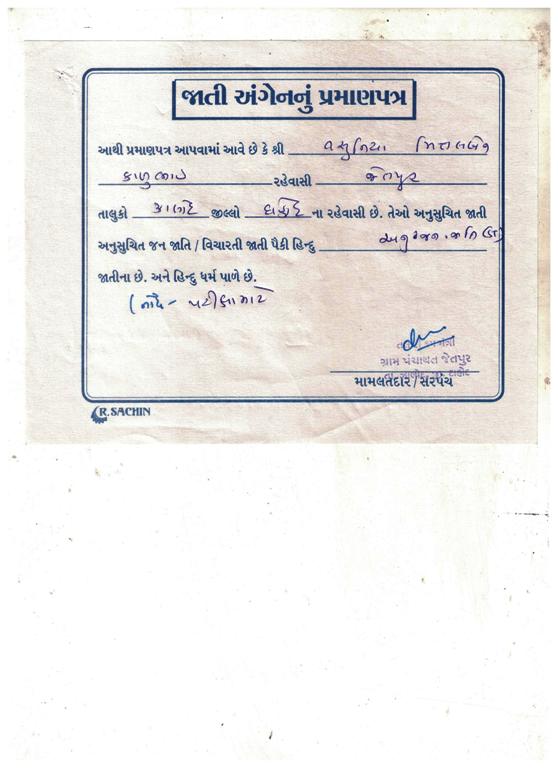 જાતી અંગેનનું પ્રમાણપત્ર
આથી પ્રમાણપત્ર આપવામાં આવે છે કે શ્રી વસુનિયા મિત્તલબેન
કાળુભાઇ રહેવાસી જેતપુર
તાલુકો ઝાલોદ જીલ્લો દાહોદ ના રહેવાસી છે. તેઓ અનુસુચિત જાતી
અનુસુચિત જન જાતિ / વિચારતી જાતી પૈકી હિન્દુ અનુ. જન. જાતિ
જાતીના છે. અને હિન્દુ ધર્મ પાળે છે.
(નોંધ - પરીક્ષા માટે
ગ્રામ પંચાયત જેતપુર
તા. ઝાલોદ, જી. દાહોદ
મામલતદાર / સરપંચ
R. SACHIN